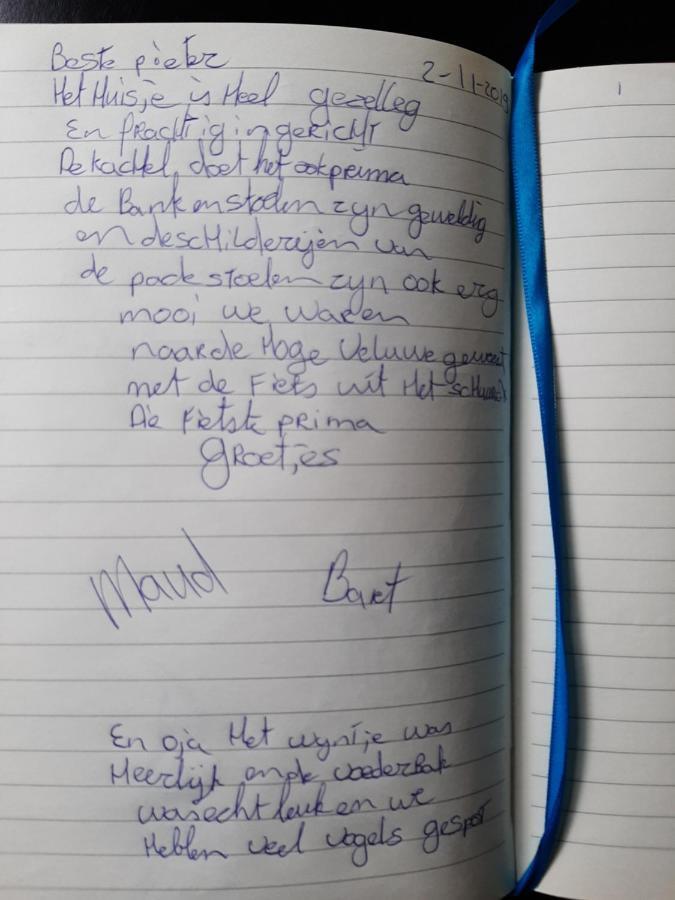 Beste pieter
2-11-2019
Het Huisje is Heel gezelleg
En prachtig ingericht
De kachel, doet het ook prima
de Bank en stoelen zyn geweldig
en de scHilderijen van
de pack stoelen zyn ook erg
mooi we waren
naar de Hoge Veluwe geweest
met de Fiets uit Het
Die Fietste prima
Groetjes
Maud Bart
1
En oja Het wyntje was
Heerlijk en de voederbak
was echt leuk en we
Hebben veel vogels gespot